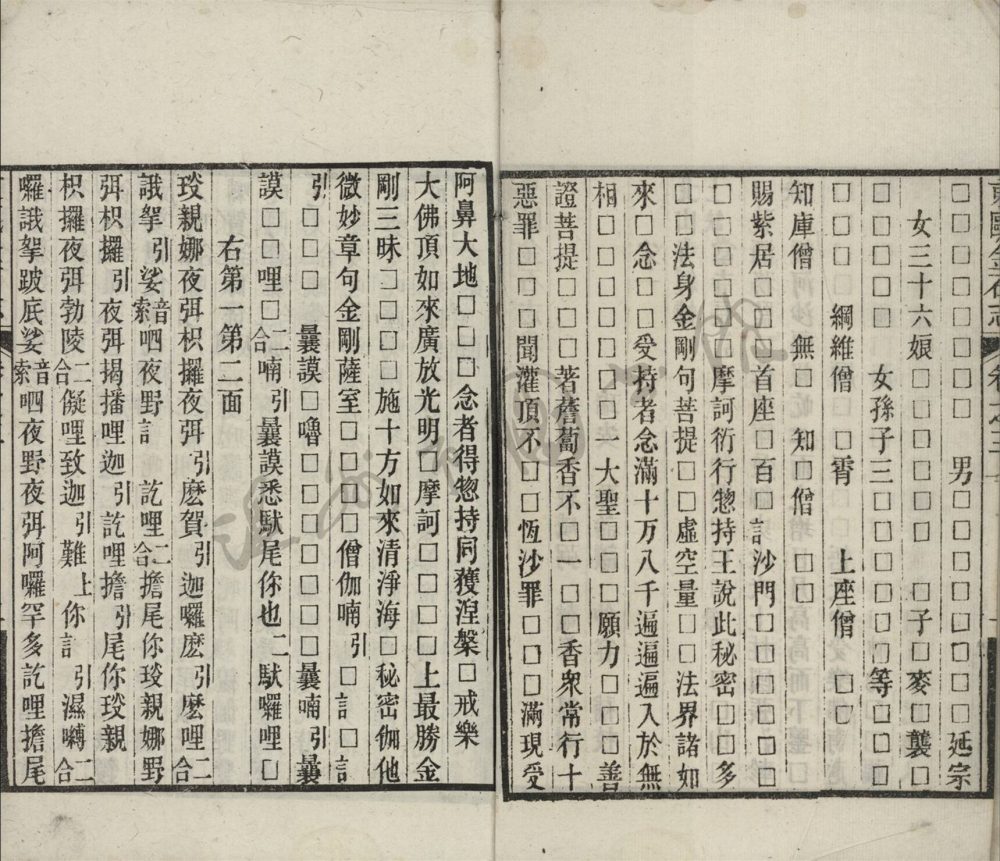 □□□□□□□男□□□□□□廷宗
女三十六娘□□□□□□子□麥□龔□
□□□□□□女孫子三□□□□□等□□□
□□□□□綱維僧□霄上座僧□□
知庫僧□□無□□知□僧□□
賜紫居□□□首座□百□訁沙門□□□□
□□□□□摩訶衍行惣持王說此秘密□□□多
□□法身金剛句菩提□□虛空量□□法界諸如
來□念□□受持者念滿十万八千遍遍遍入於無
相□□□□□□一大聖□□□願力□□□善
證菩提□□□著薝蔔香不□一□□香衆常行十
惡罪□□□聞灌頂不□□恆沙罪□□□滿現受
阿鼻大地□□□□念者得惣持同獲涅槃□戒樂
大佛頂如來廣放光明□摩訶□□□上最勝金
剛三昧□□□□施十方如來清淨海□秘密伽他
微妙章句金剛薩室□□□□僧伽喃引□訁□訁
引□□□曩謨□□嚕□□□□□□曩喃引曩
謨□□□哩□二合喃引曩謨悉馱尾你也二馱囉哩□
右第一第二面
琰親娜夜弭枳攞夜弭引麽賀引迦囉麽引麽哩二合
誐拏引娑音索呬夜野訁訖哩二合擔尾你琰親娜野
弭枳攞引夜弭揭播哩迦引訖哩擔引尾你琰親
枳攞夜弭勃陵二合儗哩致迦引難上你訁引濕嚩二合
囉誐拏跛底娑音索呬夜野夜弭阿囉罕多訖哩擔尾